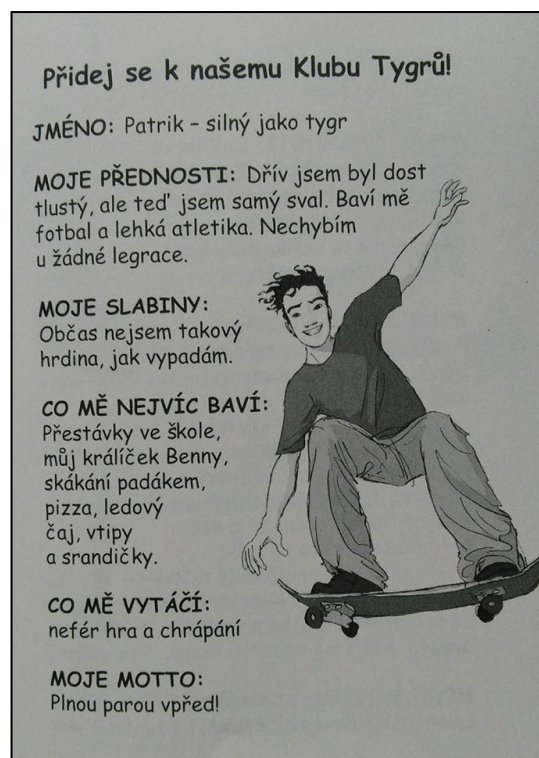 Přidej se k našemu Klubu Tygrů!
JMÉNO: Patrik – silný jako tygr
MOJE PŘEDNOSTI: Dřív jsem byl dost
tlustý, ale teď jsem samý sval. Baví mě
fotbal a lehká atletika. Nechybím
u žádné legrace.
MOJE SLABINY:
Občas nejsem takový
hrdina, jak vypadám.
CO MĚ NEJVÍC BAVÍ:
Přestávky ve škole,
můj králíček Benny,
skákání padákem,
pizza, ledový
čaj, vtipy
a srandičky.
CO MĚ VYTÁČÍ:
nefér hra a chrápání
MOJE MOTTO:
Plnou parou vpřed!